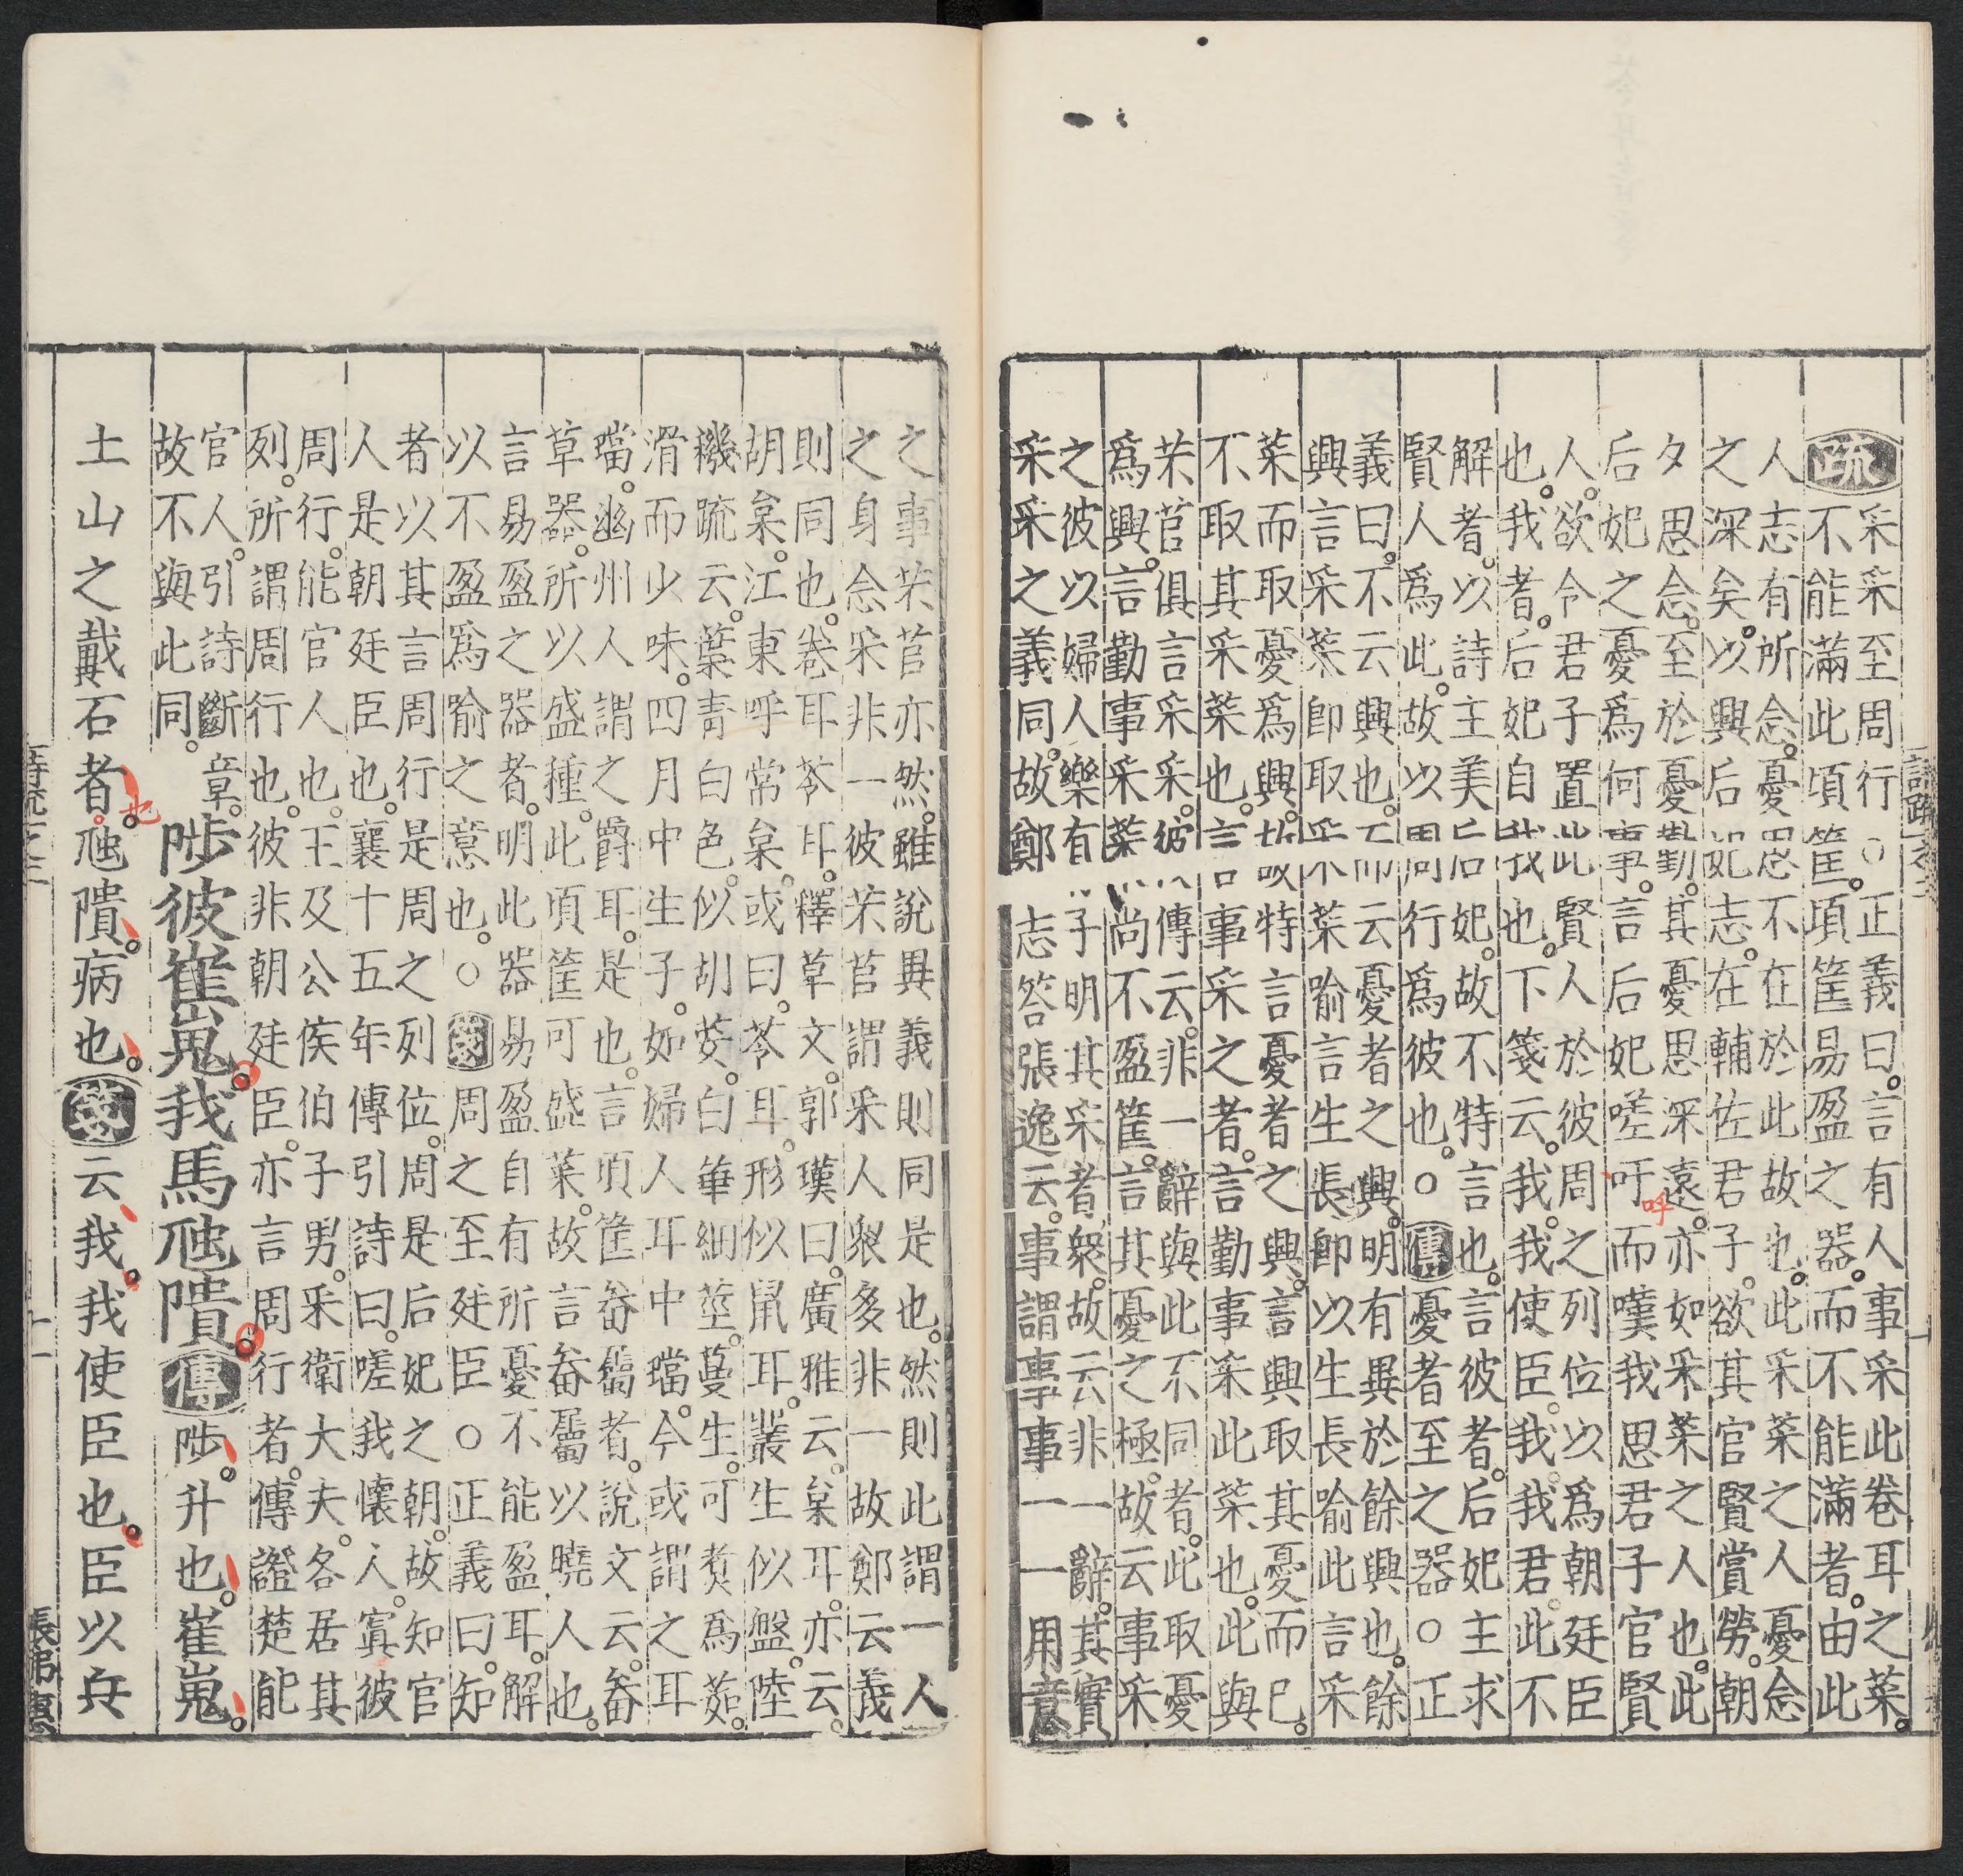 疏
采采至周行○正義曰。言有人事采此卷耳之菜。
不能滿此頃筐。頃筐易盈之器。而不能滿者。由此
人志有所念。憂思不在於此故也。此采菜之人憂念
之深矣。以興后妃志。在輔佐君子。欲其官賢賞勞。朝
夕思念。至於憂勤。其憂思深遠。亦如采菜之人也。此
后妃之憂爲何事。言后妃嗟吁而嘆我思君子官賢
人。欲令君子置此賢人於彼周之列位以爲朝廷臣
也。我者。后妃自我也。下箋云。我。我使臣。我。我君。此不
解者。以詩主美后妃。故不特言也。言彼者。后妃主求
賢人爲此。故以周行爲彼也。○傳憂者至之器○正
義曰。不云興也。而云憂者之興。明有異於餘興也。餘
興言采菜即取采菜喻言生長即以生長喻此言采
菜而取憂爲興。故特言憂者之興。言興取其憂而已。
不取其采菜也。言事采之者。言勤事采此菜也。此與
芣苢俱言采采。彼傳云。非一辭與此不同者。此取憂
爲興。言勤事采菜尚不盈筐。言其憂之極。故云事采
之彼以婦人樂有子明其采者衆。故云非一辭。其實
采采之義同。故鄭志答張逸云。事謂事事一一用意
之事芣苢亦然。雖說異義則同是也。然則此謂一人
之身念采非一彼芣苢謂采人衆多非一故鄭云義
則同也。卷耳苓耳。釋草文。郭璞曰。廣雅云。枲耳。亦云。
胡枲。江東呼常枲。或曰。苓耳。形似鼠耳。叢生似盤。陸
機疏云。葉青白色。似胡荽。白華細莖。蔓生。可煑爲茹。
滑而少味。四月中生子。如婦人耳中璫。今或謂之耳
璫。幽州人謂之爵耳。是也。言頃筐畚屬者。說文云。畚
草器。所以盛種。此頃筐可盛菜。故言畚屬以曉人也。
言易盈之器者。明此器易盈自有所憂不能盈耳。解
以不盈爲喻之意也。○箋周之至廷臣○正義曰。知
者以其言周行是周之列位。周是后妃之朝。故知官
人是朝廷臣也。襄十五年傳引詩曰。嗟我懷人。寘彼
周行。能官人也。王及公侯伯子男。采衛大夫。各居其
列。所謂周行也。彼非朝廷臣。亦言周行者。傳證楚能
官人。引詩斷章。
故不與此同。
陟彼崔嵬。我馬虺隤。傳陟。升也。崔嵬。
土山之戴石者。虺隤。病也。箋云。我。我使臣也。臣以兵
也
呼